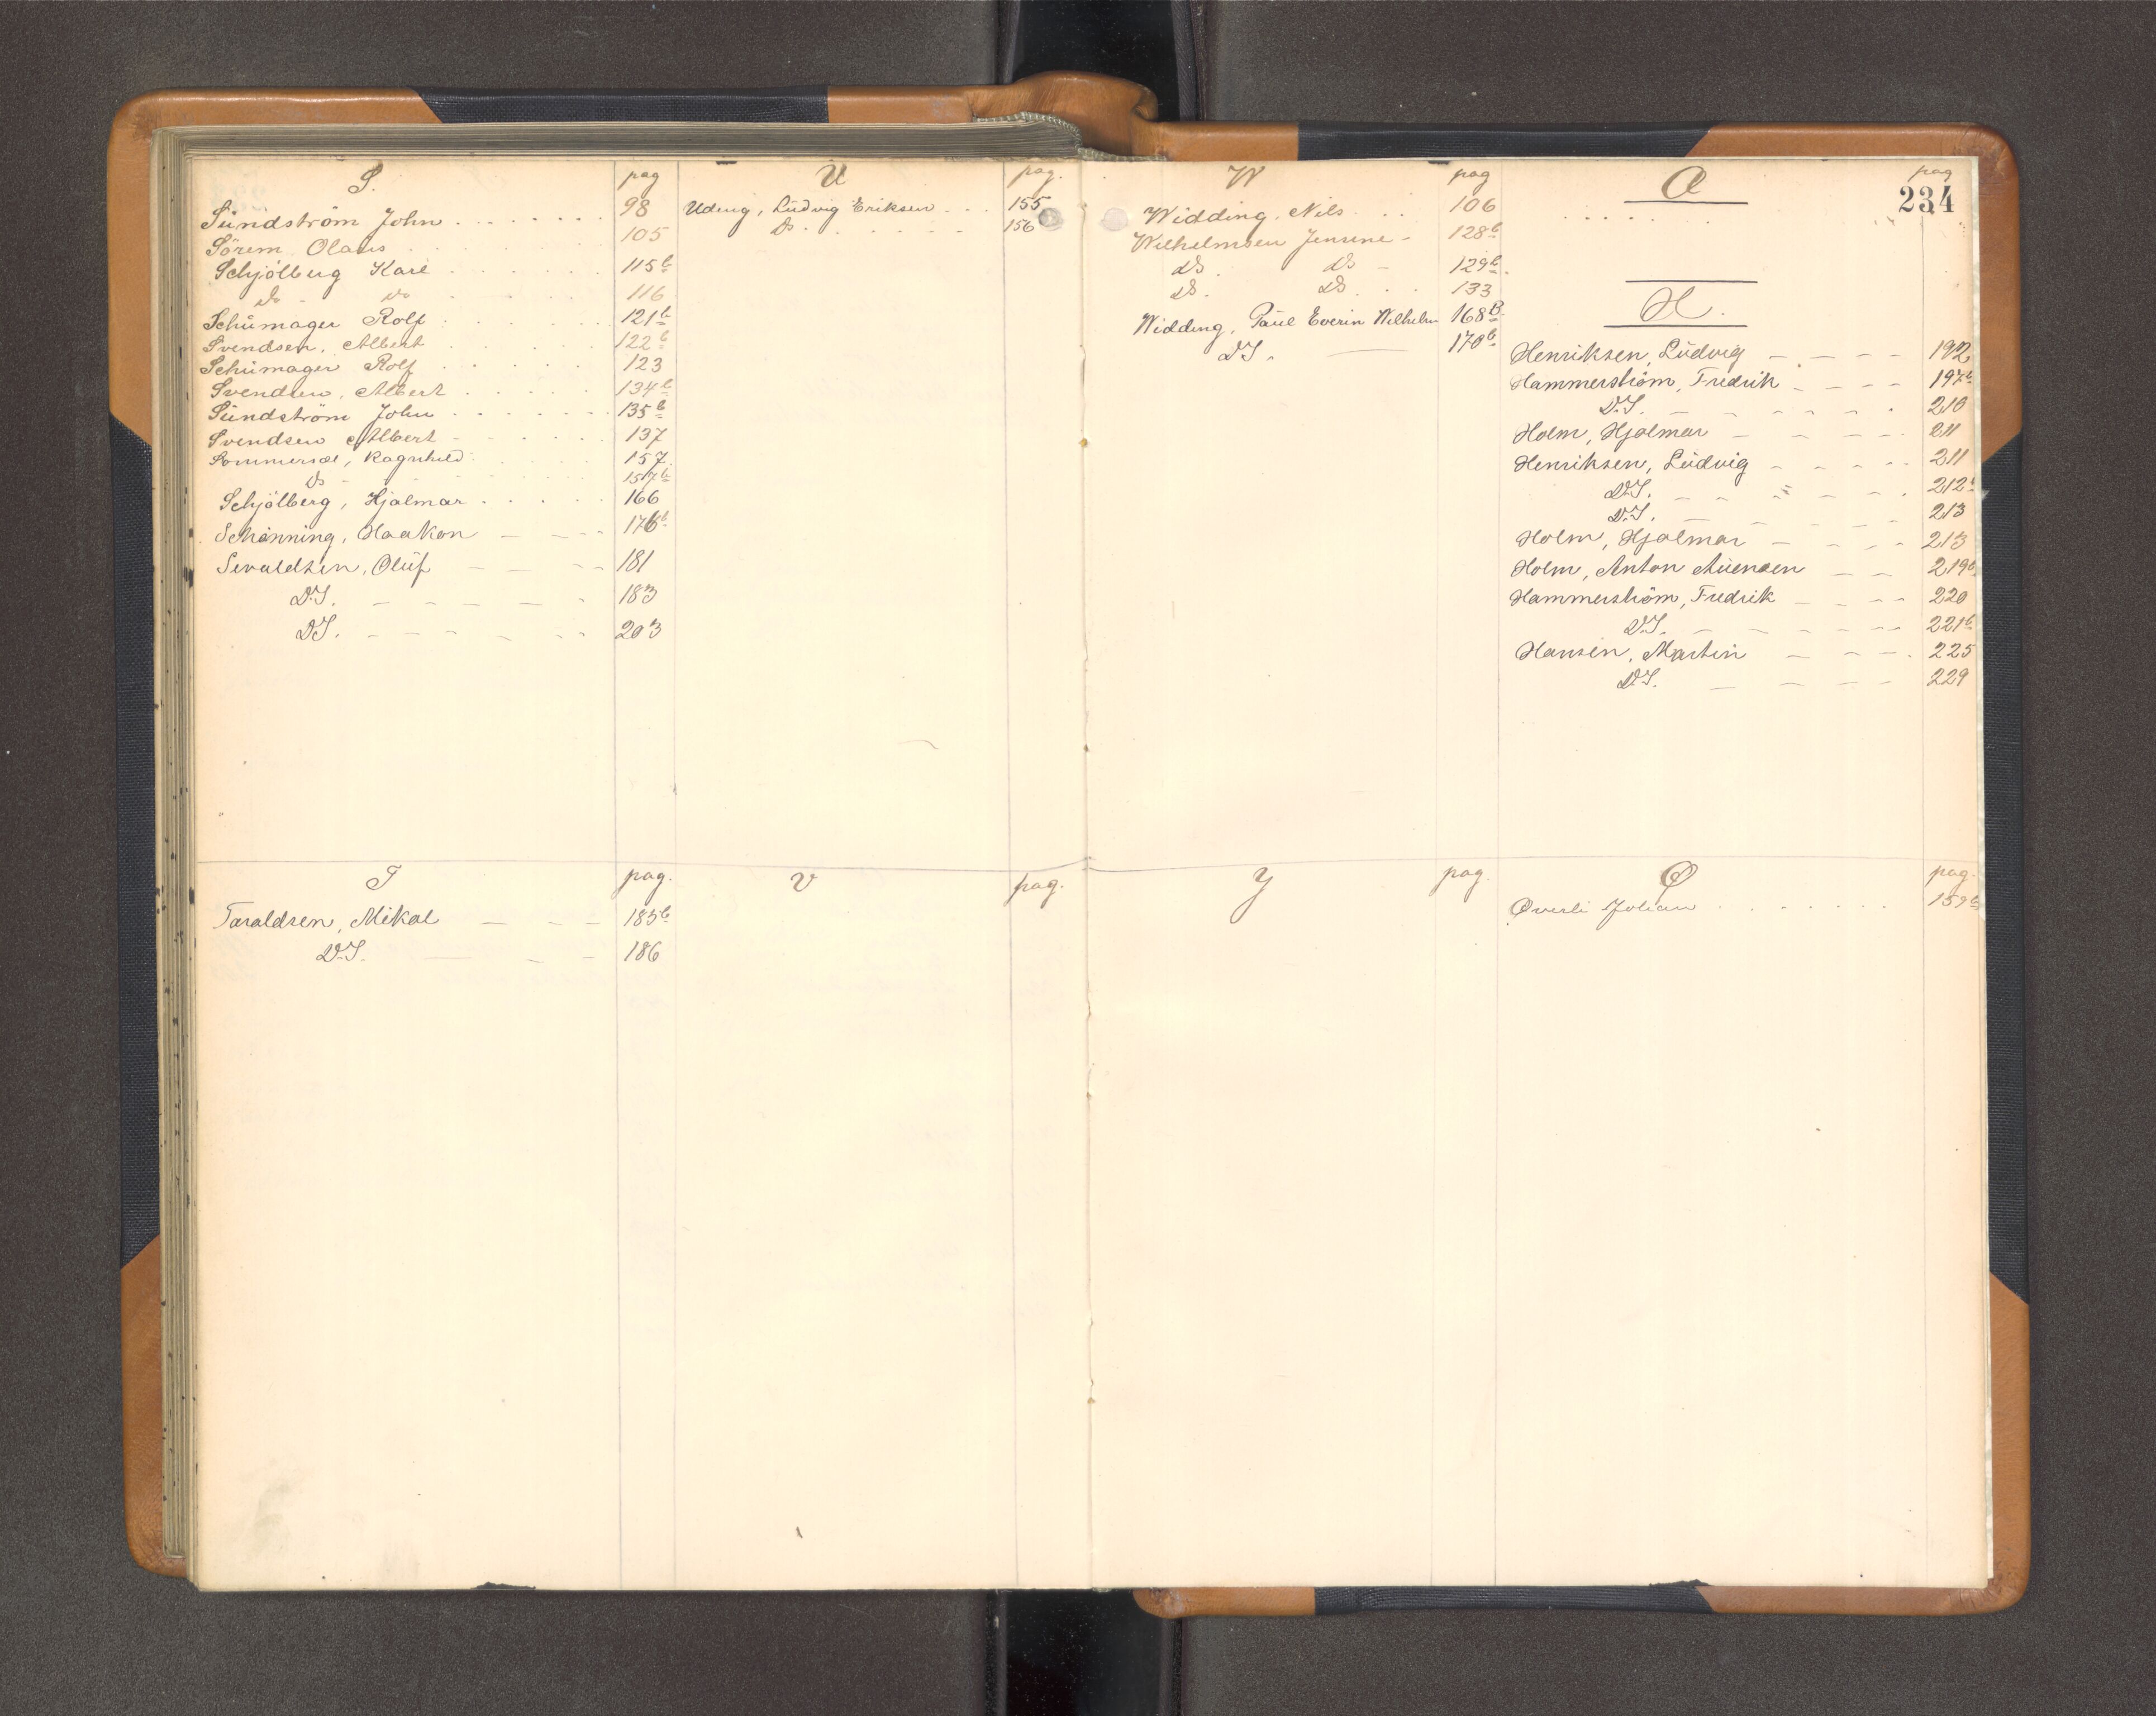 S. pag
Sündström John . . . . . . . 98
Sörem Olaus . . . . . . 105
Schjölberg Karl . . . . . . 115b
do - do . . . . . 116
Schümager Rolf . . . . . . 121b
Svendsen, Albert . . . . . . 122b
Schümager Rolf . . . . . . 123
Svendsen, Albert . . . . . 134b
Sündström John . . . . . . . 135b
Svendsen Albert - . . . . . 137
Sommersæl, Ragnhild . . . . . 157
do - . . . . . 157b
Schjölberg, Hjalmar . . . . . 166
Schønning, Haakon - - - - 176b
Sivaldsen, Olüf - - - - 181
D.S. - - - - - - 183
D.S. - - - - - - 203
T pag.
Taraldsen, Mikal - - - 185b
D.S. - - - 186
U pag.
Uding, Lüdvig Eriksen . . . 155
Do. . . . - - - 156
V pag.
W pag
Widding, Nils . . . 106
Wilhelmsen Jensine - 128b
do. do - 129b
do. do . . . 133
Widding, Paül Everin Wilhelm 168B
D.S. - 170b
Y pag.
Å pag
234
H.
Henriksen, Lüdvig - - - - 192
Hammerström, Fredrik - - - - 197b
D.S. - - - - - . 210
Holm, Hjalmar - - - - 211
Henriksen, Lüdvig - - - - 211
D.S. - - - - - . 212b
D.S. - - - - - 213
Holm, Hjalmar - - - - 213
Holm, Anton - - 219b
Hammerström, Fredrik - - - - 220
D.S. - - - - - - 221b
Hansen, Martin - - - . 225
D.S. - - - - 229
Ø pag.
Øverli Johan . . . . . . . . 159b